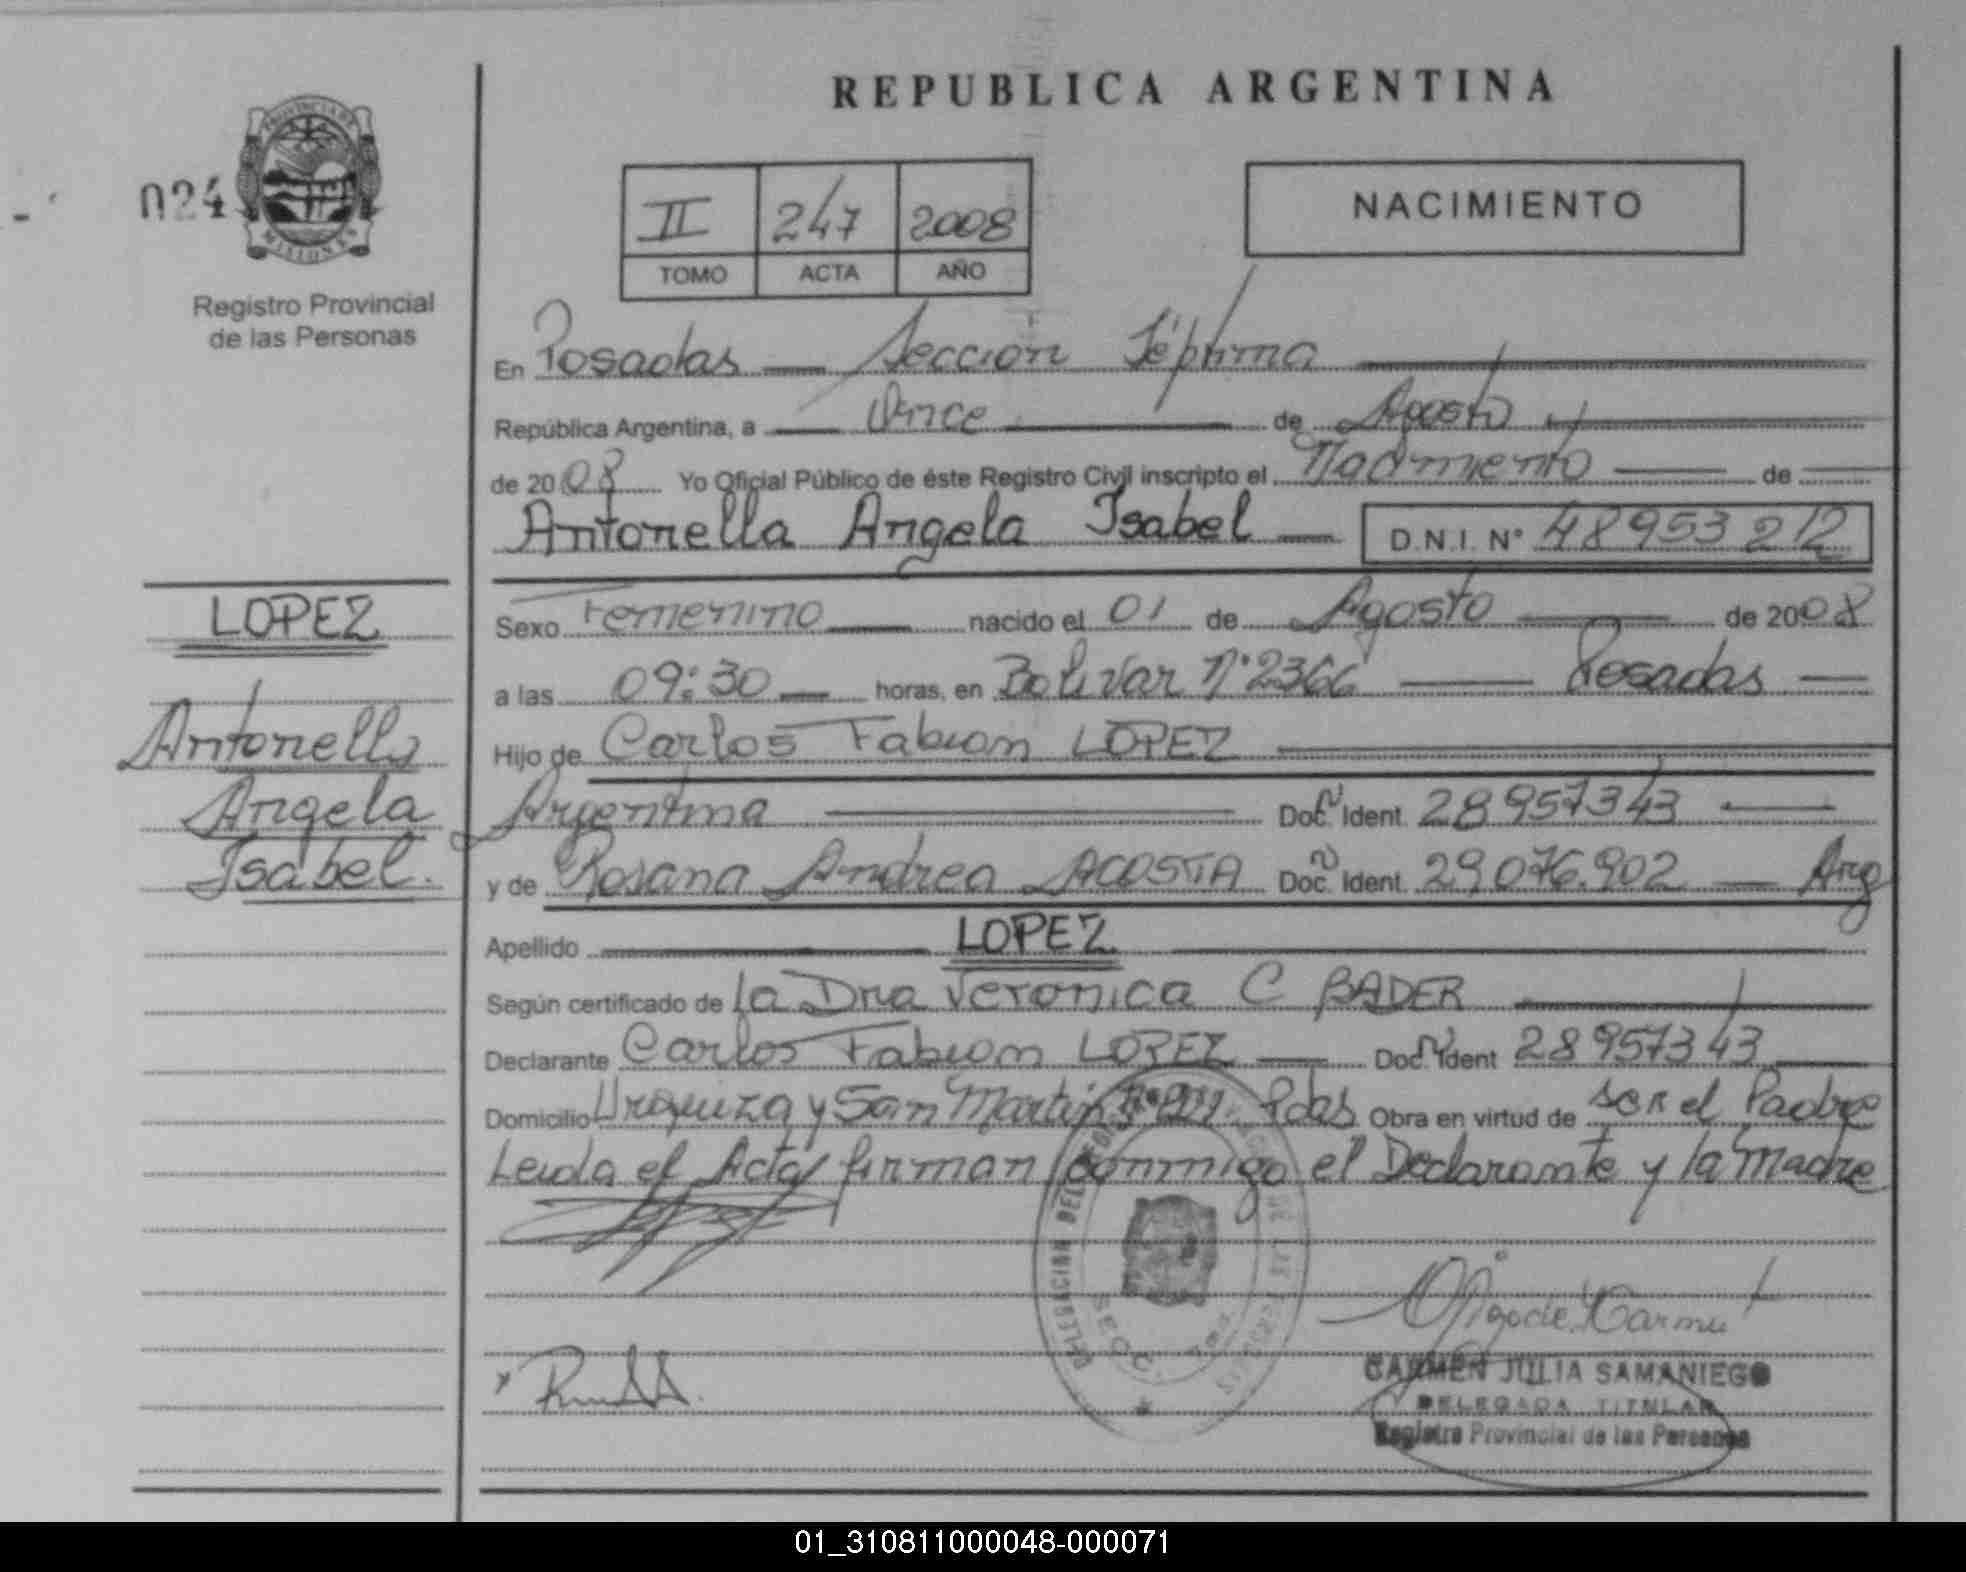 REPUBLICA ARGENTINA
024
PROVINCIA DE MISIONES
Registro Provincial
de las Personas
II 247 2008
TOMO ACTA AÑO
NACIMIENTO
En Posadas Sección Séptima
República Argentina, a Once de Agosto
de 2008 Yo Oficial Público de éste Registro Civil inscripto el Nacimiento de
Antonella Angela Isabel D.N.I. N° 48953212
LOPEZ
Antonella
Angela
Isabel.
Sexo Femenino nacido el 01 de Agosto de 2008
a las 09:30 horas, en Bolivar N°2366 Posadas
Hijo de Carlos Fabian LOPEZ
Argentina Doc. Ident. 28957343
y de Rosana Andrea ACOSTA Doc. Ident. 29.076.902 Arg
Apellido LOPEZ
Según certificado de la Dra Veronica C BADER
Declarante Carlos Fabian LOPEZ Doc. Ident 28957343
Domicilio Urquiza y San Martin Pdas Obra en virtud de ser el Padre
Leida el Acta firman conmigo el Declarante y la Madre
DELEGACION DEL
SECC.
CARMEN JULIA SAMANIEGO
DELEGADA TITULAR
Registro Provincial de las Personas
01_310811000048-000071